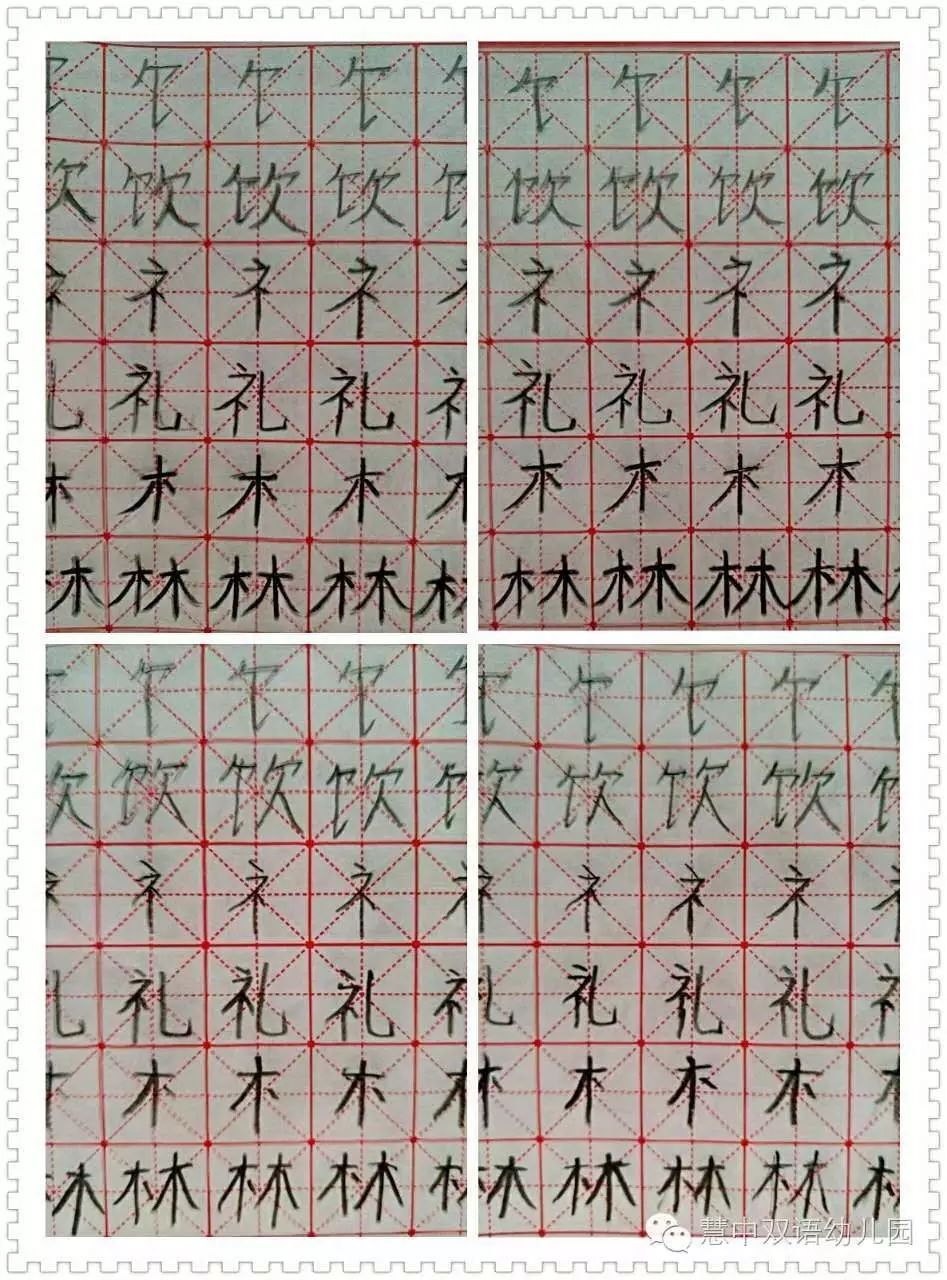 饣 饣 饣
饮 饮 饮
礻 礻 礻
礼 礼 礼
木 木 木
林 林 林 林
饣 饣 饣 饣
饮 饮 饮 饮
礻 礻 礻 礻
礼 礼 礼 礼
木 木 木 木
林 林 林 林
饣 饣 饣
饮 饮 饮
礻 礻 礻
礼 礼 礼
木 木 木
林 林 林 林
饣 饣 饣
饮 饮 饮
礻 礻 礻
礼 礼 礼
木 木 木
林 林 林 林
慧中双语幼儿园